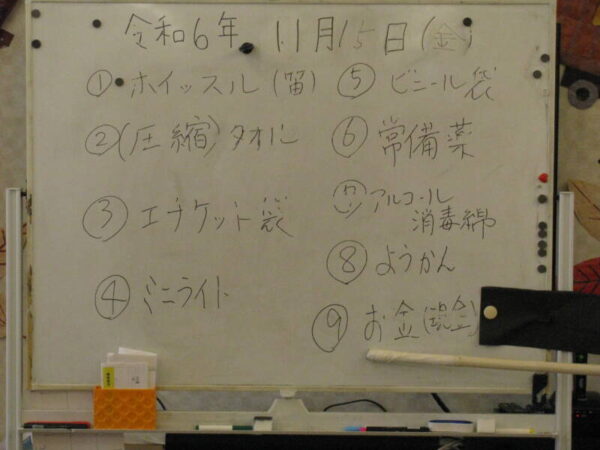 令和6年 11月15日(金)
① ホイッスル(笛)
②(圧縮)タオル
③ エチケット袋
④ ミニライト
⑤ ビニール袋
⑥ 常備薬
⑦ アルコール
消毒綿
⑧ ようかん
⑨ お金(現金)